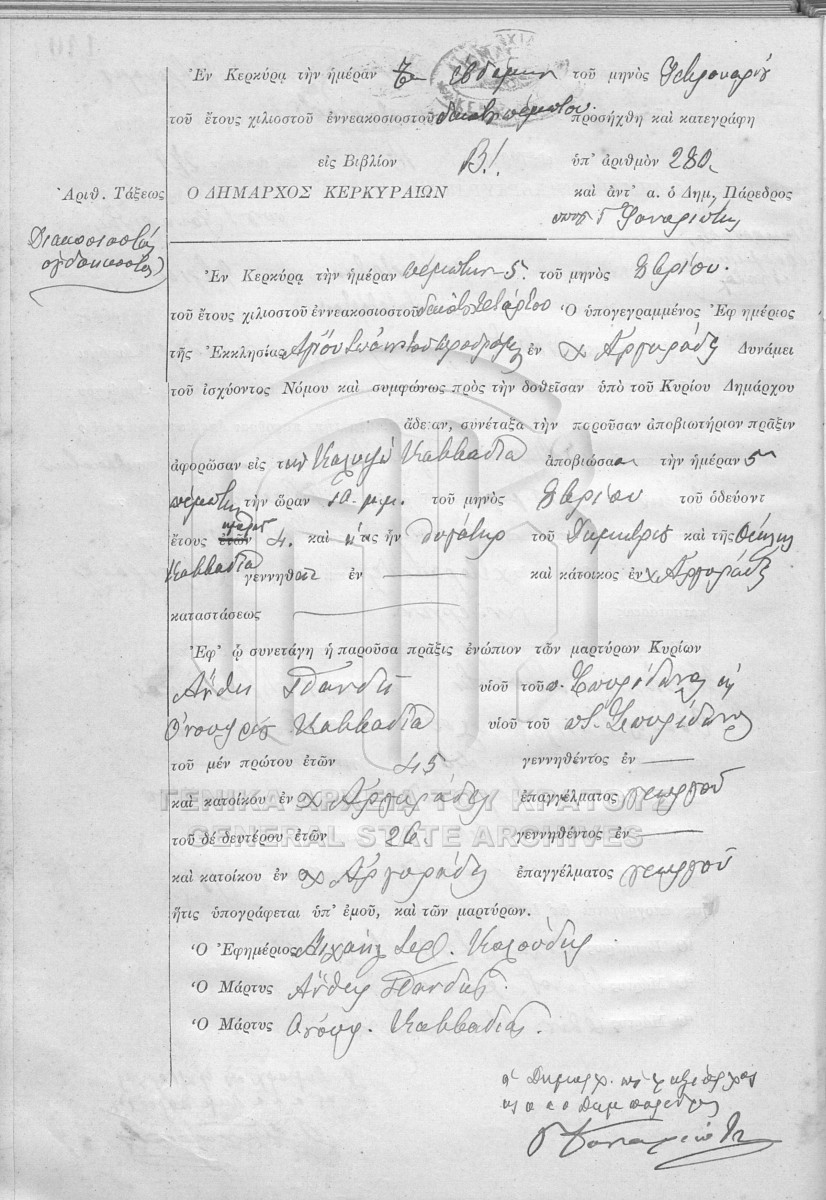 Ἐν Κερκύρᾳ τὴν ἡμέραν 7 ἑβδόμην τοῦ μηνὸς Φεβρουαρίου
τοῦ ἔτους χιλιοστοῦ ἐννεακοσιοστοῦ δεκάτου πέμπτου προσήχθη καὶ κατεγράφη
εἰς Βιβλίον Β! ὑπ' ἀριθμὸν 280
Ἀριθ. Τάξεως Ο ΔΗΜΑΡΧΟΣ ΚΕΡΚΥΡΑΙΩΝ καὶ ἀντ' α. ὁ Δημ, Πάρεδρος
Διακοσιοστὴ
ὀγδοηκοστὴ
Ἐν Κερκύρᾳ τὴν ἡμέραν πέμπτην 5 τοῦ μηνὸς 8βρίου
τοῦ ἔτους χιλιοστοῦ ἐννεακοσιοστοῦ δεκάτου τετάρτου Ὁ ὑπογεγραμμένος Ἐφημέριος
τῆς Ἐκκλησίας Ἁγίου ἐν χ Ἀργυράδες Δυνάμει
τοῦ ἰσχύοντος Νόμου καὶ συμφώνως πρὸς τὴν δοθεῖσαν ὑπὸ τοῦ Κυρίου Δημάρχου
ἄδειαν, συνέταξα τὴν παροῦσαν ἀποβιωτήριον πρᾶξιν
ἀφορῶσαν εἰς τὴν Καββαδία ἀποβιώσασαν τὴν ἡμέραν 5
πέμπτην τὴν ὥραν 10 μ.μ. τοῦ μηνὸς 8βρίου τοῦ ὁδεύοντ
ἔτους ἐτῶν 4. καὶ ἥτις ἦν θυγάτηρ τοῦ Δημητρίου καὶ τῆς
Καββαδία γεννηθεῖσα ἐν — καὶ κάτοικος ἐν χ Ἀργυράδες
καταστάσεως —
Ἐφ' ᾧ συνετάγη ἡ παροῦσα πρᾶξις ἐνώπιον τῶν μαρτύρων Κυρίων
Πανδῆ υἱοῦ τοῦ π. Σπυρίδωνος καὶ
Ὀνουφρίου Καββαδία υἱοῦ τοῦ ποτ. Σπυρίδωνος
τοῦ μέν πρώτου ἐτῶν 45 γεννηθέντος ἐν —
καὶ κατοίκου ἐν χ Ἀργυράδες ἐπαγγέλματος γεωργοῦ
τοῦ δέ δευτέρου ἐτῶν 26. γεννηθέντος ἐν —
καὶ κατοίκου ἐν χ Ἀργυράδες ἐπαγγέλματος γεωργοῦ
ἥτις ὑπογράφεται ὑπ' ἐμοῦ, καὶ τῶν μαρτύρων.
Ὁ Ἐφημέριος Μιχαὴλ Ἱερ. Καλούδης
Ὁ Μάρτυς Πανδῆς
Ὁ Μάρτυς Ὀνούφρ. Καββαδίας.
ΓΕΝΙΚΑ ΑΡΧΕΙΑ ΤΟΥ ΚΡΑΤΟΥΣ
GENERAL STATE ARCHIVES